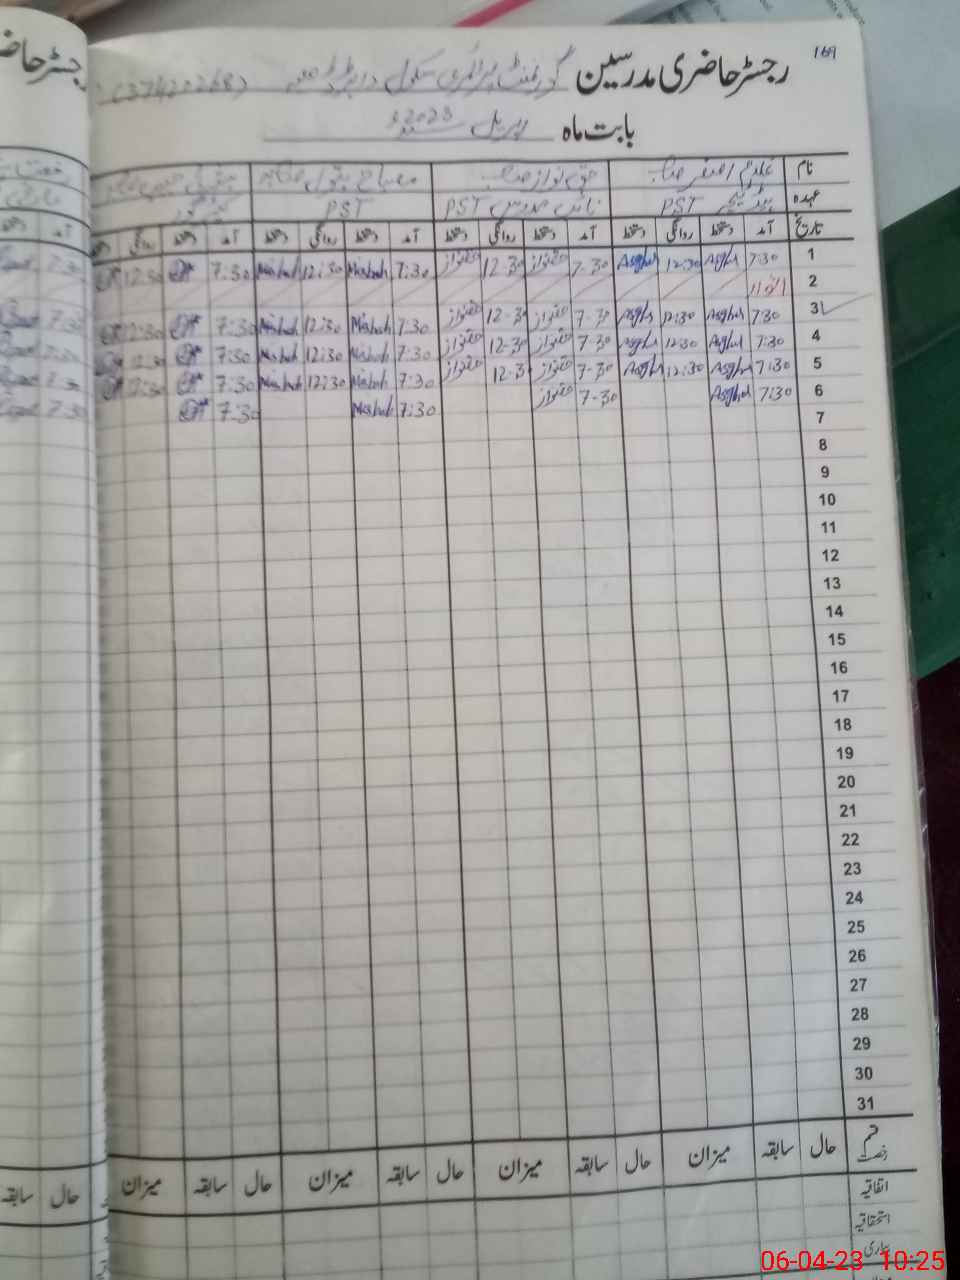 169
رجسٹر حاضری مدرسین گورنمنٹ پرائمری سکول (37420268)
بابت ماہ اپریل 2023ء
نام غلام اصغر صاحب حق نواز صاحب مصباح بتول صاحبہ
عہدہ ہیڈ ٹیچر PST نائب مدرس PST PST
تاریخ آمد دستخط روانگی دستخط آمد دستخط روانگی دستخط آمد دستخط روانگی دستخط آمد دستخط روانگی
1 7:30 Asghar 12:30 Asghar 7-30 حق نواز 12-30 حق نواز 7:30 Misbah 12:30 Misbah 7:30 12:30
2 اتوار
3 7:30 Asghar 12:30 Asghar 7-30 حق نواز 12-30 حق نواز 7:30 Misbah 12:30 Misbah 7:30 12:30
4 7:30 Asghar 12:30 Asghar 7-30 حق نواز 12-30 حق نواز 7:30 Misbah 12:30 Misbah 7:30 12:30
5 7:30 Asghar 12:30 Asghar 7-30 حق نواز 12-30 حق نواز 7:30 Misbah 12:30 Misbah 7:30 12:30
6 7:30 Asghar 7-30 حق نواز 7:30 Misbah 7:30
7
8
9
10
11
12
13
14
15
16
17
18
19
20
21
22
23
24
25
26
27
28
29
30
31
قسم رخصت حال سابقہ میزان حال سابقہ میزان حال سابقہ میزان حال سابقہ میزان
اتفاقیہ
استحقاقیہ
بیماری
06-04-23 10:25